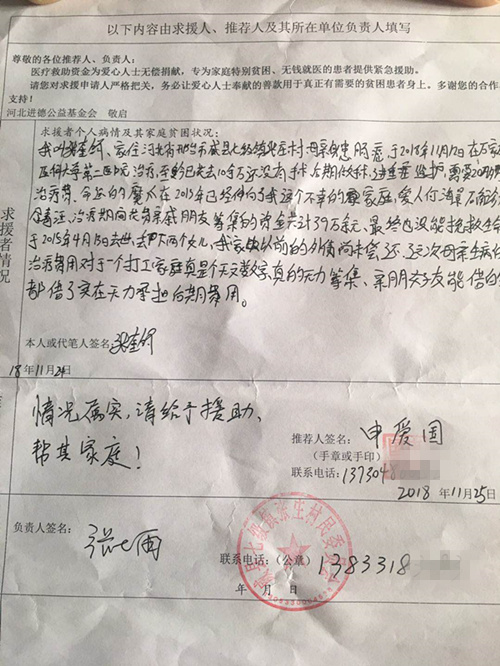 以下内容由求援人、推荐人及其所在单位负责人填写
尊敬的各位推荐人、负责人：
医疗救助资金为爱心人士无偿捐献，专为家庭特别贫困、无钱就医的患者提供紧急援助。
请您对求援申请人严格把关，务必让爱心人士奉献的善款用于真正有需要的贫困患者身上。多谢您的合作
支持！
河北进德公益基金会 敬启
求援者情况
求援者个人病情及其家庭贫困状况：
家住河北省邢台市威县七级镇张庄村 母亲患 于2018年11月17日在石家庄
医科大学第二医院治疗，至今已花去10多万还没有手术，后期
治疗费，命运的魔爪在2015年已经伸向了我这个不幸的家庭，爱人
治疗期间先后亲戚朋友筹集的资金共计39万余元，最终也没能挽救生命
于2015年4月15日去世，下两个女儿，我家以前的外债尚未偿还，这次母亲生病
治疗费用对于一个打工家庭真是个天文数字，真的无力筹集，亲朋好友能借的
都借了实在无力承担后期费用。
本人或代笔人签名
18年11月24
情况属实，请给于援助，
帮其家庭！
推荐人签名：申爱国
（手章或手印）
联系电话：1373048
2018年11月25日
负责人签名：
联系电话：（公章）1383318
年 月 日
威县七级镇张庄村民委员会